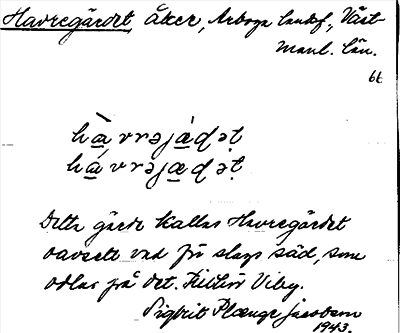 Havregärdet, åker, Arboga landsf., Väst-
manl. län.
bt
hà̱vrəjá̱dəṭ
há̱vrəjæ̱dəṭ
Detta gärde kallas Havregärdet
oavsett vad för slags säd, som
odlas på det. Viby.
Sigbrit Plænge Jacobson
1943.